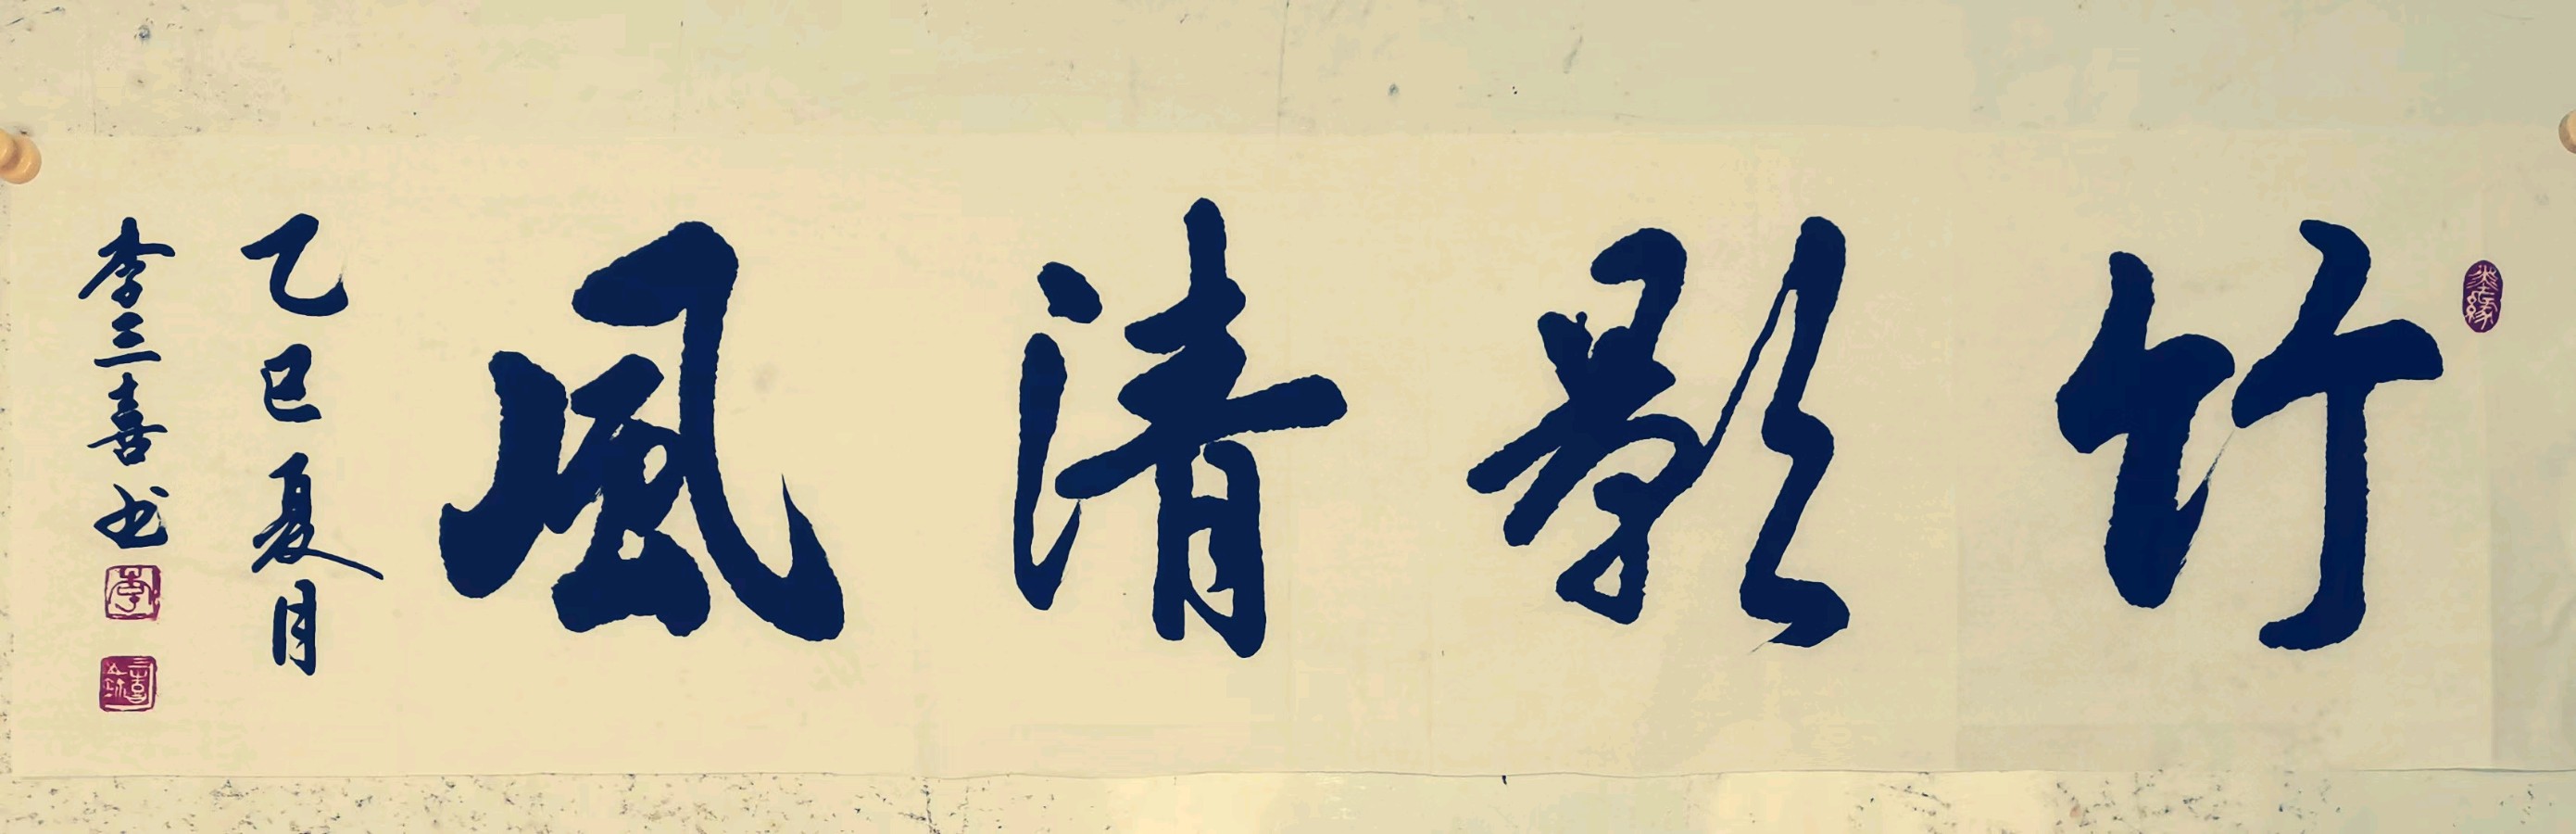 竹影清風
乙巳夏月
李三喜书